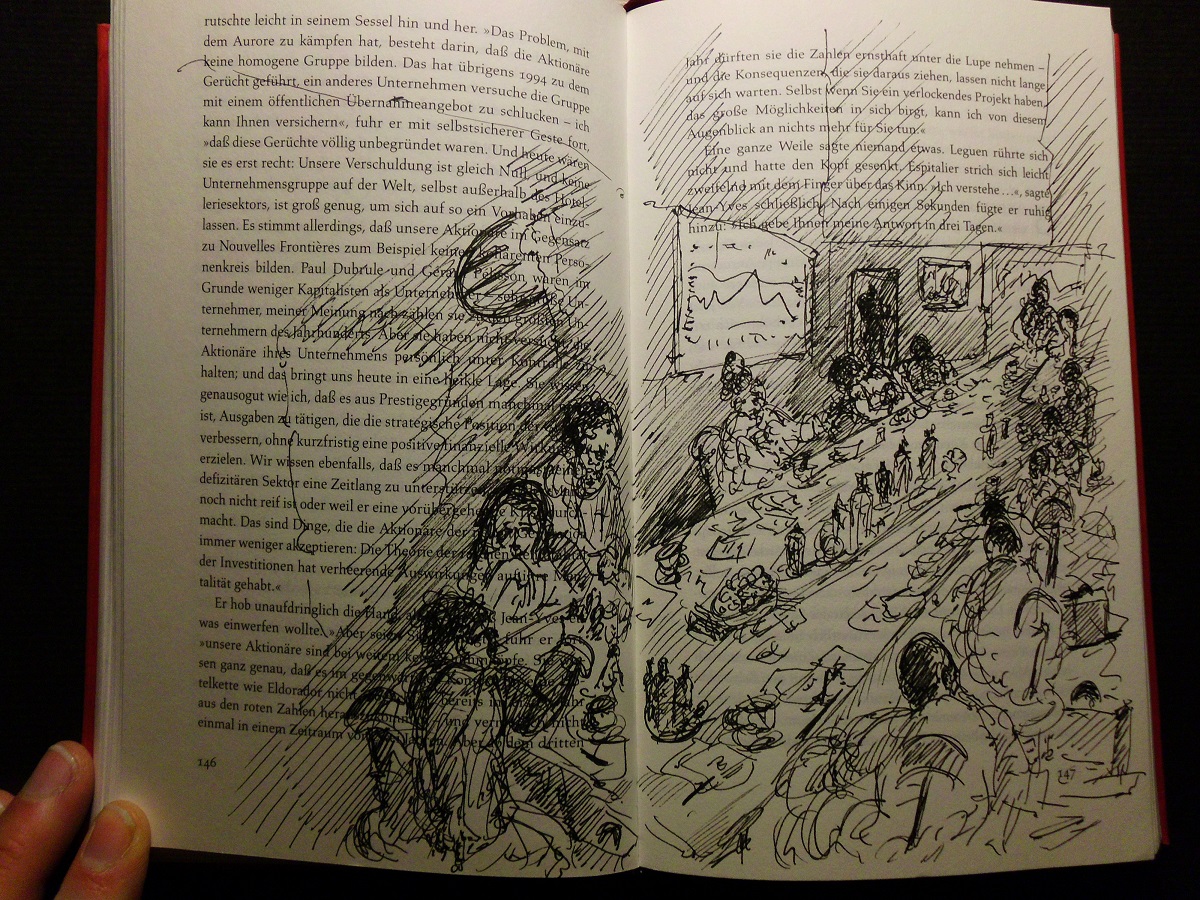 rutschte leicht in seinem Sessel hin und her. »Das Problem, mit
dem Aurore zu kämpfen hat, besteht darin, daß die Aktionäre
keine homogene Gruppe bilden. Das hat übrigens 1994 zu dem
Gerücht geführt, ein anderes Unternehmen versuche die Gruppe
mit einem öffentlichen Übernahmeangebot zu schlucken – ich
kann Ihnen versichern«, fuhr er mit selbstsicherer Geste fort,
»daß diese Gerüchte völlig unbegründet waren. Und heute wären
sie es erst recht: Unsere Verschuldung ist gleich Null, und keine
Unternehmensgruppe auf der Welt, selbst außerhalb des Hotel-
leriesektors, ist groß genug, um sich auf so ein Vorhaben einzu-
lassen. Es stimmt allerdings, daß unsere Aktionäre im Gegensatz
zu Nouvelles Frontières zum Beispiel keinen kohärenten Perso-
nenkreis bilden. Paul Dubrule und Gérard Pélisson waren im
Grunde weniger Kapitalisten als Unternehmer – sehr große Un-
ternehmer, meiner Meinung nach zählen sie zu den großen Un-
ternehmern des Jahrhunderts. Aber sie haben nicht versucht, die
Aktionäre ihres Unternehmens persönlich unter Kontrolle zu
halten; und das bringt uns heute in eine heikle Lage. Sie wissen
genausogut wie ich, daß es aus Prestigegründen manchmal
ist, Ausgaben zu tätigen, die die strategische Position der
verbessern, ohne kurzfristig eine positive finanzielle Wirkung
erzielen. Wir wissen ebenfalls, daß es manchmal nötig ist, einen
defizitären Sektor eine Zeitlang zu unterstützen,
noch nicht reif ist oder weil er eine vorübergehende Krise durch-
macht. Das sind Dinge, die die Aktionäre der neuen Generation
immer weniger akzeptieren: Die Theorie der raschen
der Investitionen hat verheerende Auswirkungen auf ihre Men-
talität gehabt.«
Er hob unaufdringlich die Hand, als Jean-Yves
was einwerfen wollte. »Aber seien Sie fuhr er fort
»unsere Aktionäre sind bei weitem keine Dummköpfe. Sie wis-
sen ganz genau, daß es im gegenwärtigen
telkette wie Eldorador nicht bereits im ersten Jahr
aus den roten Zahlen herauszukommen – und vermutlich nicht
einmal in einem Zeitraum von Aber ab dem dritten
146
Jahr dürften sie die Zahlen ernsthaft unter die Lupe nehmen –
und die Konsequenzen, die sie daraus ziehen, lassen nicht lange
auf sich warten. Selbst wenn Sie ein verlockendes Projekt haben,
das große Möglichkeiten in sich birgt, kann ich von diesem
Augenblick an nichts mehr für Sie tun.«
Eine ganze Weile sagte niemand etwas. Leguen rührte sich
nicht und hatte den Kopf gesenkt. Espitalier strich sich leicht
zweifelnd mit dem Finger über das Kinn. »Ich verstehe …«, sagte
Jean-Yves schließlich. Nach einigen Sekunden fügte er ruhig
hinzu: »Ich gebe Ihnen meine Antwort in drei Tagen.«
147